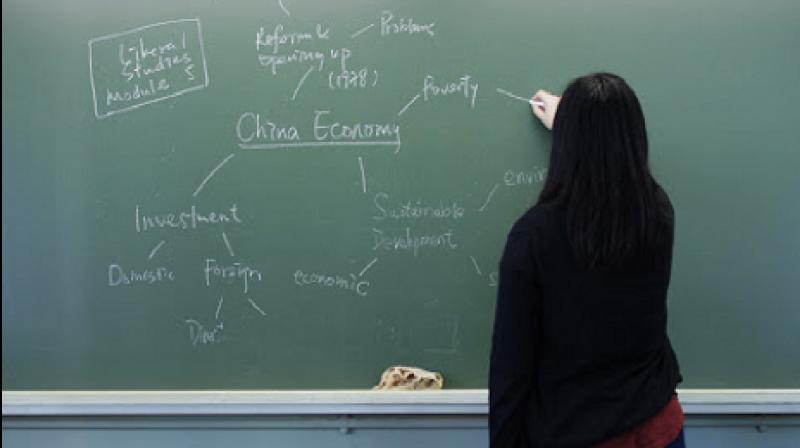 Liberal
Studies
Module 5
Reform &
opening up
(1978)
Problems
Poverty
China Economy
Investment
Domestic
Foreign
Sustainable
Development
economic
envir
s